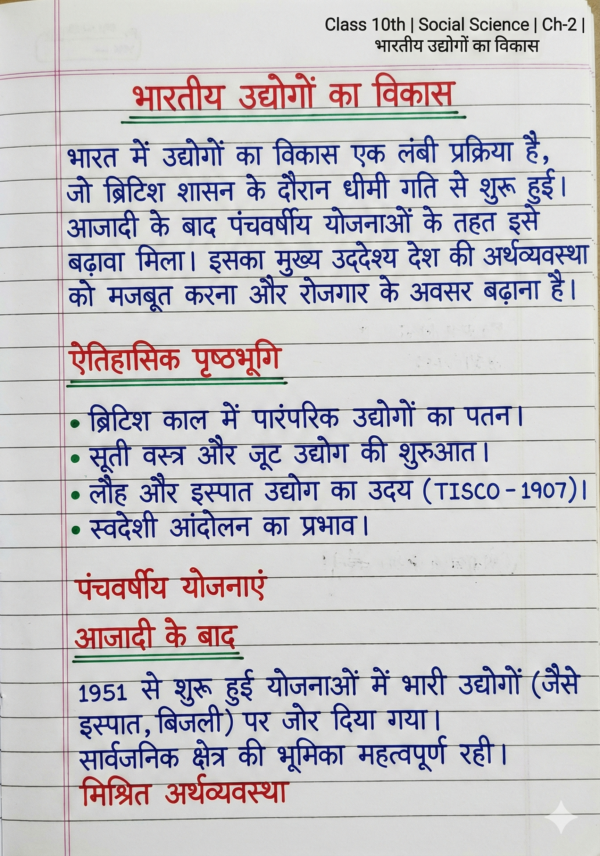 Class 10th | Social Science | Ch-2 |
भारतीय उद्योगों का विकास
भारतीय उद्योगों का विकास
भारत में उद्योगों का विकास एक लंबी प्रक्रिया है,
जो ब्रिटिश शासन के दौरान धीमी गति से शुरू हुई।
आजादी के बाद पंचवर्षीय योजनाओं के तहत इसे
बढ़ावा मिला। इसका मुख्य उद्देश्य देश की अर्थव्यवस्था
को मजबूत करना और रोजगार के अवसर बढ़ाना है।
ऐतिहासिक पृष्ठभूगि
• ब्रिटिश काल में पारंपरिक उद्योगों का पतन।
• सूती वस्त्र और जूट उद्योग की शुरुआत।
• लौह और इस्पात उद्योग का उदय (TISCO - 1907)।
• स्वदेशी आंदोलन का प्रभाव।
पंचवर्षीय योजनाएं
आजादी के बाद
1951 से शुरू हुई योजनाओं में भारी उद्योगों (जैसे
इस्पात, बिजली) पर जोर दिया गया।
सार्वजनिक क्षेत्र की भूमिका महत्वपूर्ण रही।
मिश्रित अर्थव्यवस्था